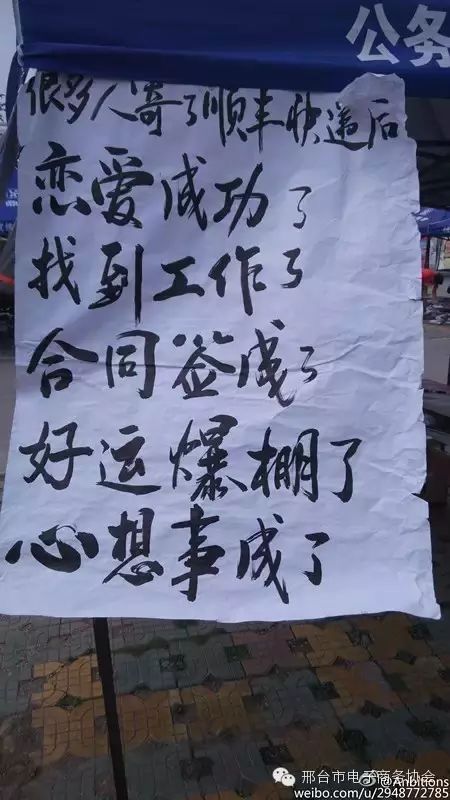 公务
很多人寄了顺丰快递后
恋爱成功了
找到工作了
合同签成了
好运爆棚了
心想事成了
邢台市电子商务协会
@Anbitions
weibo.com/u/2948772785